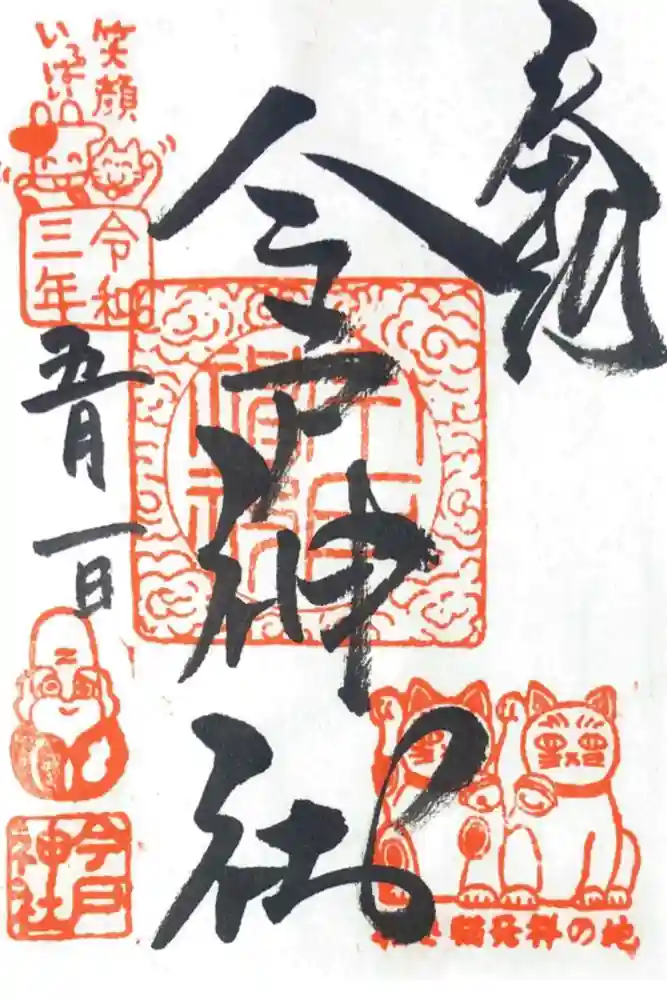 奉拝
今戸神社
笑顔
いっぱい
令和
三年
五月一日
今戸
神社
猫発祥の地